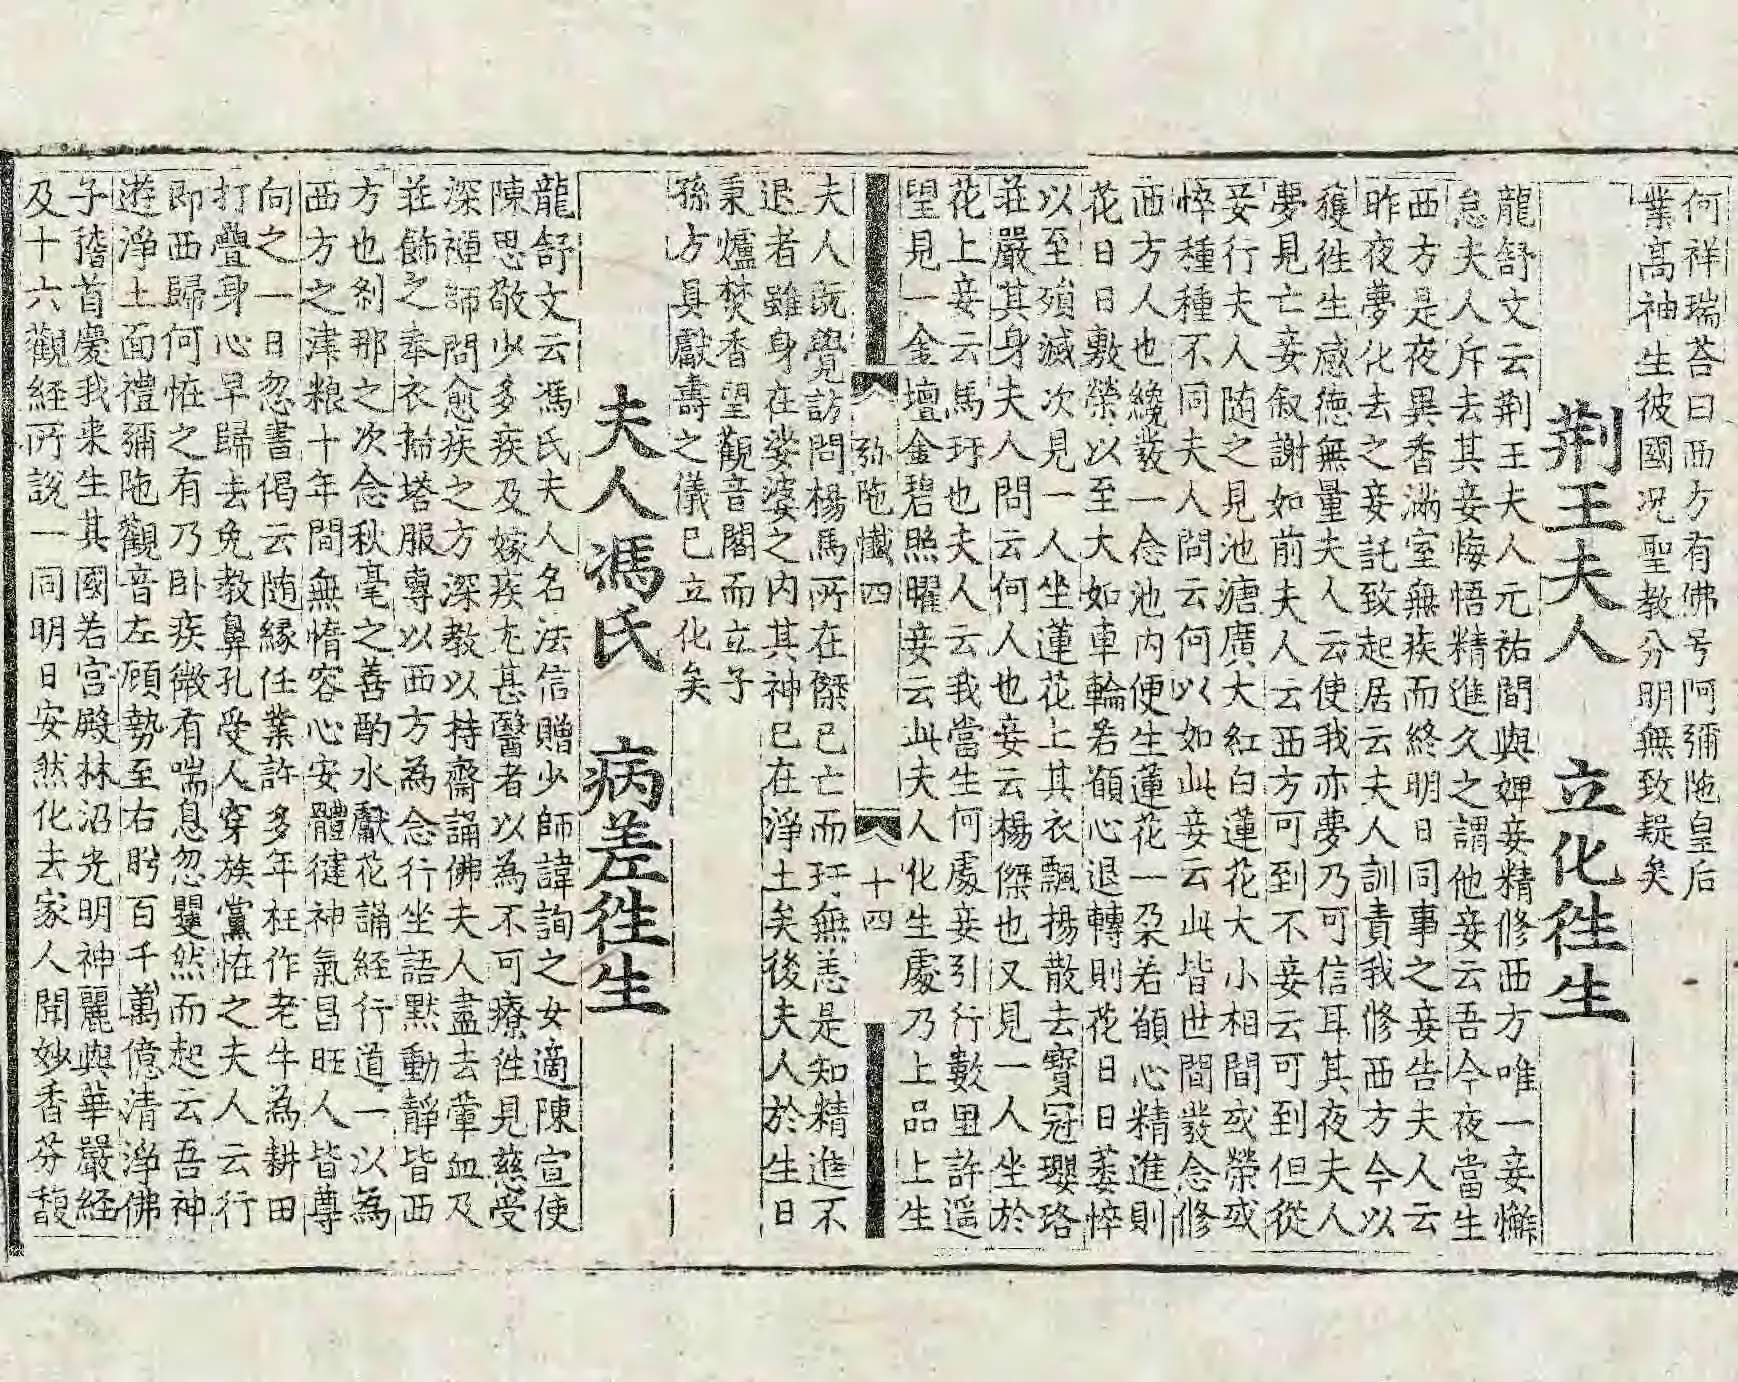 何祥瑞荅曰西方有佛号阿彌陁皇后
業高神生彼國况聖教分明無致疑矣
荆王夫人 立化徃生
龍舒文云荆王夫人元祐間與婢妾精修西方唯一妾懈
怠夫人斥去其妾悔悟精進久之謂他妾云吾今夜當生
西方是夜異香滿室無疾而終明日同事之妾告夫人云
昨夜夢化去之妾託致起居云夫人訓責我修西方今以
獲徃生感德無量夫人云使我亦夢乃可信耳其夜夫人
夢見亡妾叙謝如前夫人云西方可到不妾云可到但從
妾行夫人随之見池溏廣大紅白蓮花大小相間或榮或
悴種種不同夫人問云何以如此妾云此皆世間發念修
西方人也纔發一念池内便生蓮花一朵若願心精進則
花日日敷榮以至大如車輪若願心退轉則花日日萎悴
以至殞滅次見一人坐蓮花上其衣飄揚散去寳冠瓔珞
莊嚴其身夫人問云何人也妾云楊傑也又見一人坐於
花上妾云馬玗也夫人云我當生何處妾引行數里許遥
望見一金壇金碧照曜妾云此夫人化生處乃上品上生
弥陁懴四 十四
夫人旣覺訪問楊馬所在傑已亡而玗無恙是知精進不
退者雖身在娑婆之内其神已在淨土矣後夫人於生日
秉爐焚香望觀音閣而立子
孫方具獻壽之儀已立化矣
夫人馮氏 病差徃生
龍舒文云馮氏夫人名法信贈少師諱詢之女適陳宣使
陳思敬少多疾及嫁疾尢甚醫者以為不可療徃見慈受
深禪師問愈疾之方深教以持齋誦佛夫人盡去葷血及
莊飾之奉衣掃塔服專以西方為念行坐語默動靜皆西
方也刹那之次念秋毫之善酌水獻花誦経行道一以為
西方之津粮十年間無惰容心安體健神氣昌旺人皆尊
向之一日忽書偈云随縁任業許多年枉作老牛為耕田
打疊身心早歸去免教鼻孔受人穿族黨恠之夫人云行
即西歸何恠之有乃卧疾微有喘息忽矍然而起云吾神
遊淨土面禮彌陁觀音左顧勢至右盻百千萬億清淨佛
子稽首慶我来生其國若宮殿林沼光明神麗與華嚴経
及十六觀経所說一同明日安然化去家人聞妙香芬馥